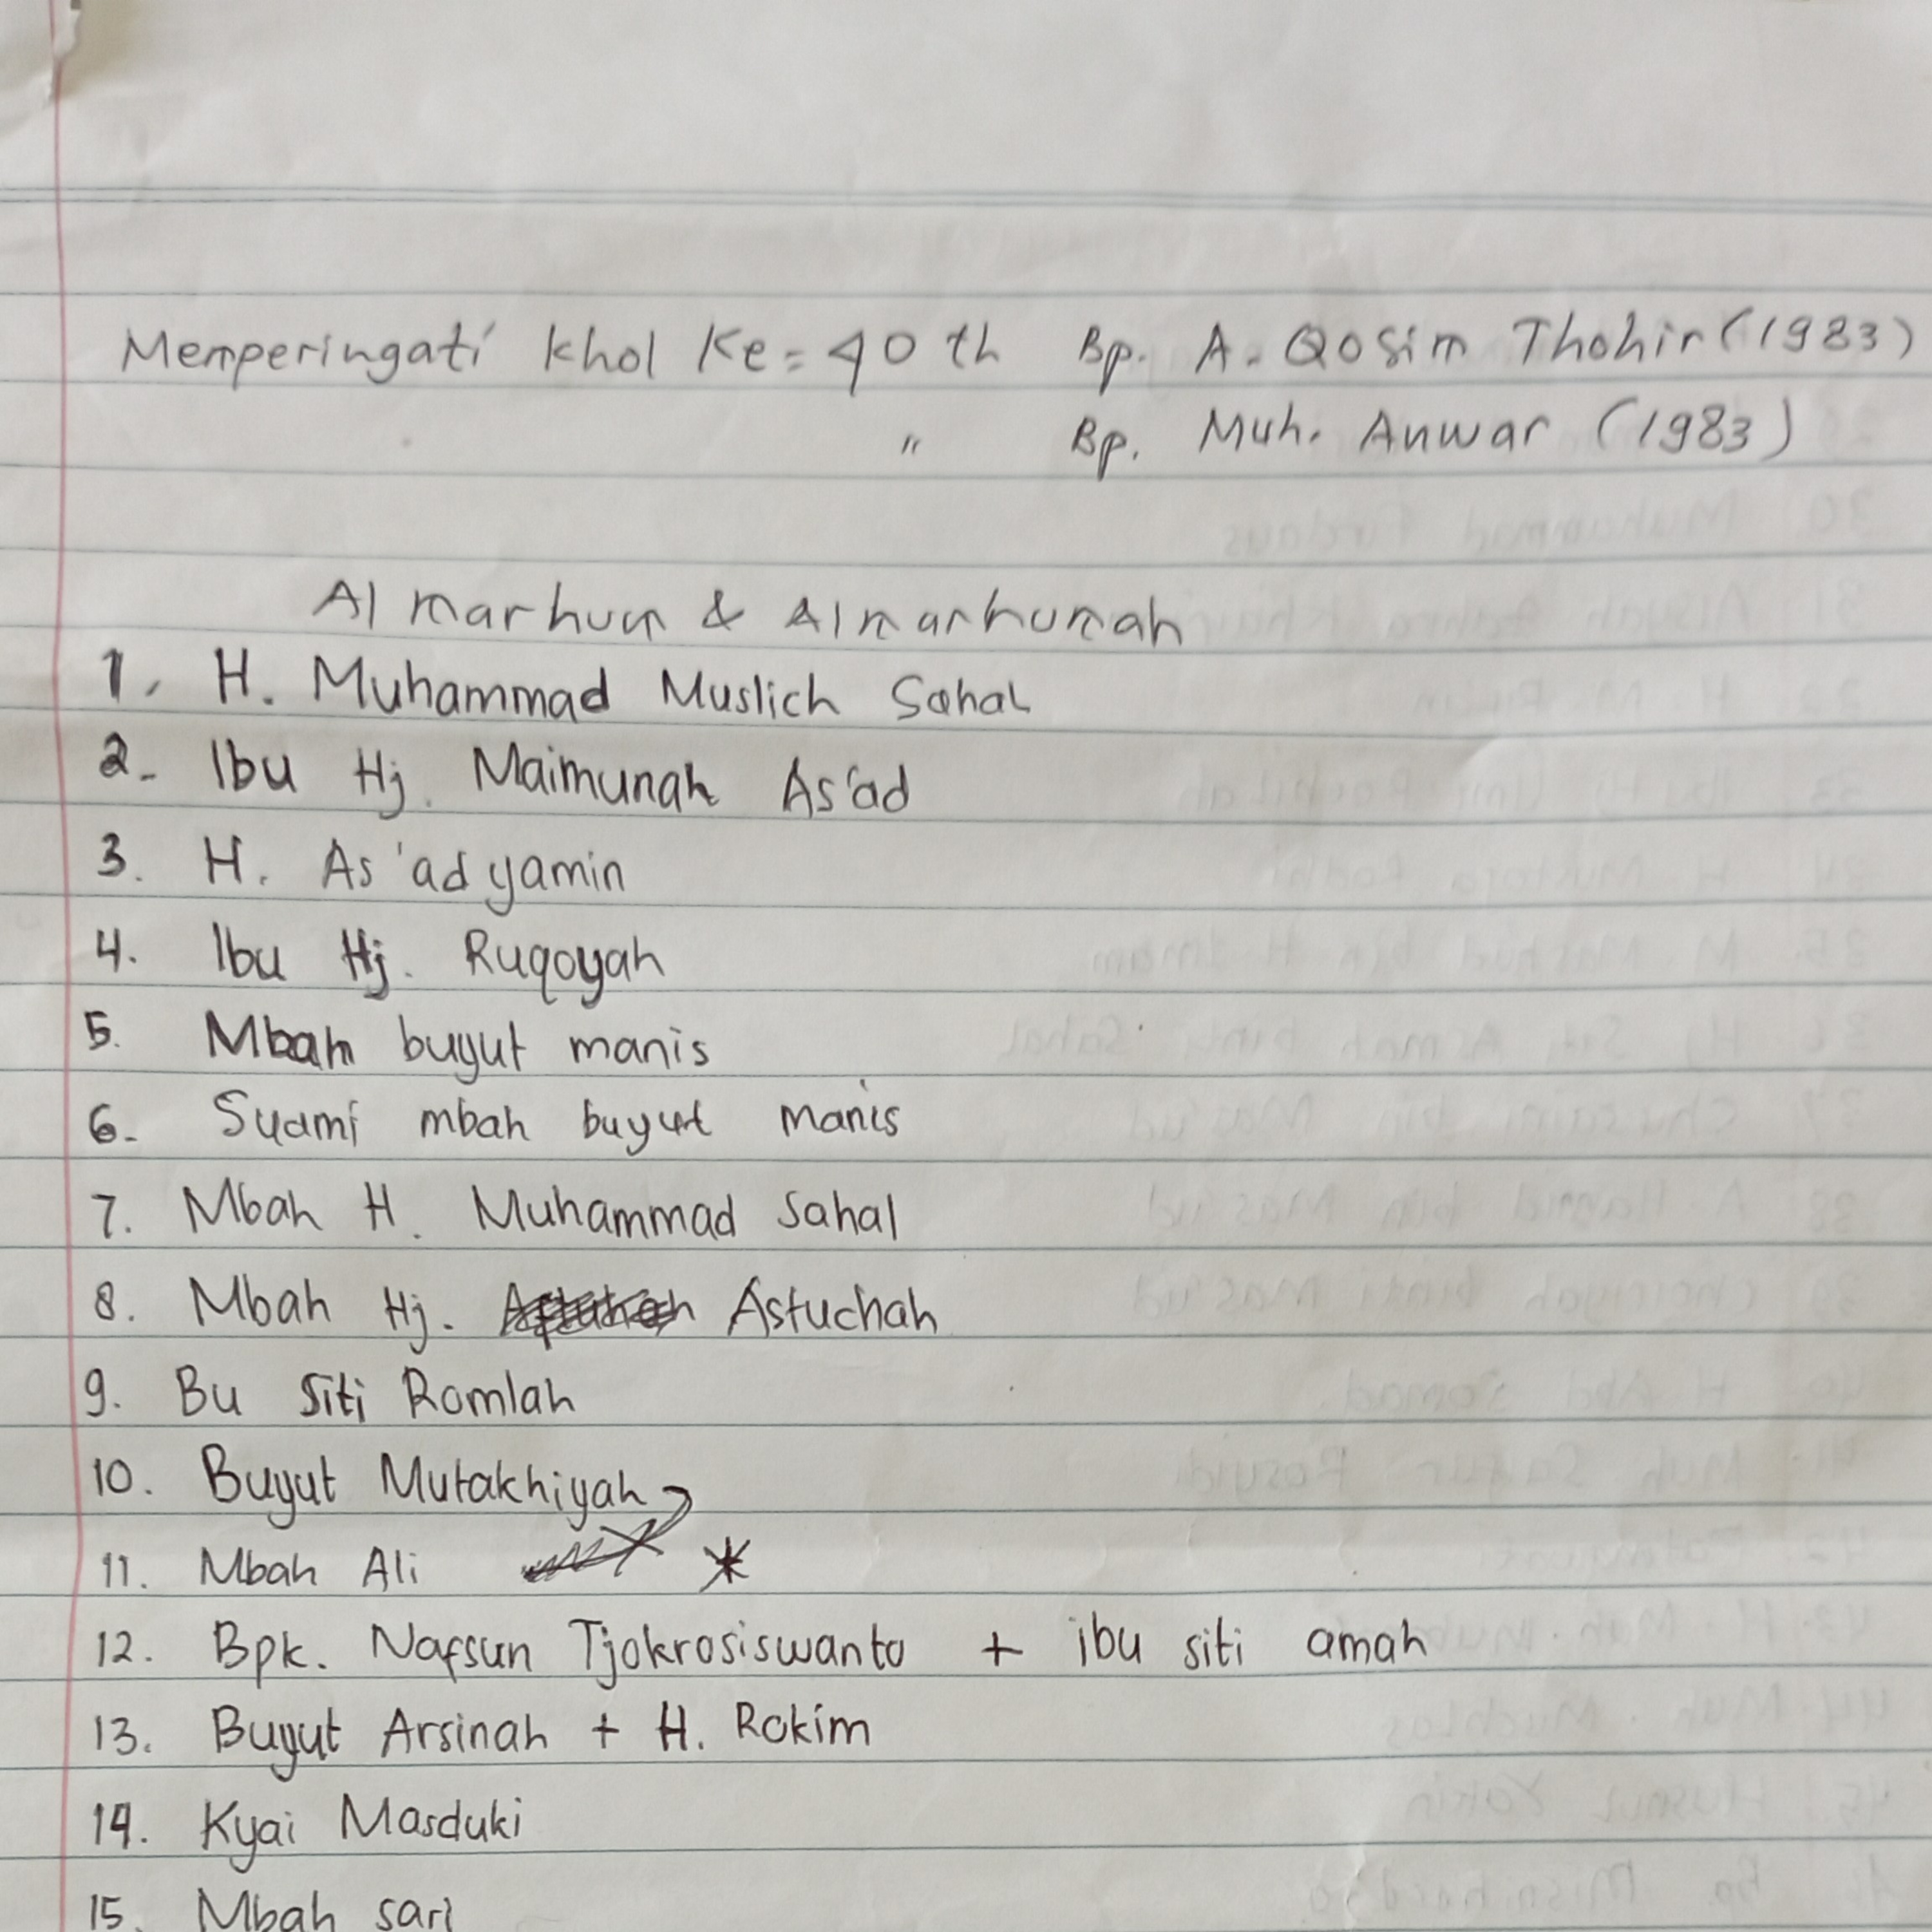 Memperingati khol Ke= 40 th Bp. A. Qosim Thohir (1983)
" Bp. Muh. Anwar (1983)
Almarhum & Almarhumah
1. H. Muhammad Muslich Sahal
2. Ibu Hj. Maimunah As'ad
3. H. As'ad yamin
4. Ibu Hj. Ruqoyah
5. Mbah buyut manis
6. Suami mbah buyut manis
7. Mbah H. Muhammad Sahal
8. Mbah Hj. Astuchah
9. Bu Siti Romlah
10. Buyut Mutakhiyah
11. Mbah Ali *
12. Bpk. Nafsun Tjokrosiswanto + ibu siti amah
13. Buyut Arsinah + H. Rokim
14. Kyai Masduki
15. Mbah sari